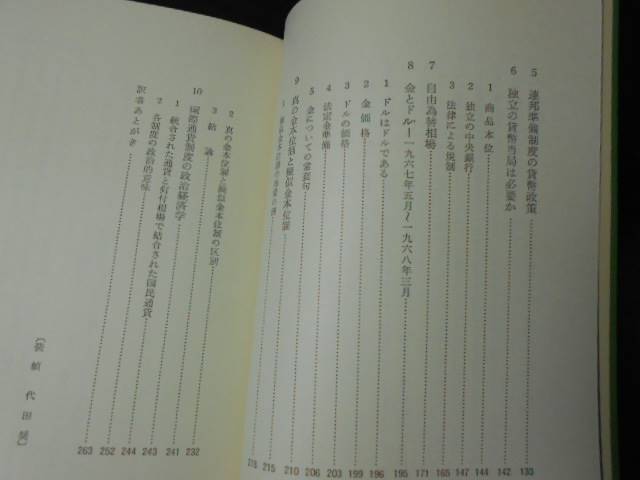 5 連邦準備制度の貨幣政策 133
6 独立の貨幣当局は必要か 142
1 商品本位 144
2 独立の中央銀行 147
3 法律による規制 165
7 自由為替相場 171
8 金とドル―一九六七年五月〜一九六八年三月 195
1 ドルはドルである 196
2 金価格 199
3 ドルの価格 203
4 法定金準備 206
5 金についての常套句 210
9 真の金本位制と擬似金本位制 215
1 擬似金本位制の
2 真の金本位制と擬似金本位制の区別 232
3 結論 241
10 国際通貨制度の政治経済学 243
1 統合された通貨と釘付相場で結合された国民通貨 244
2 各制度の政治的意味 252
訳者あとがき 263
〔装幀 代田奨〕